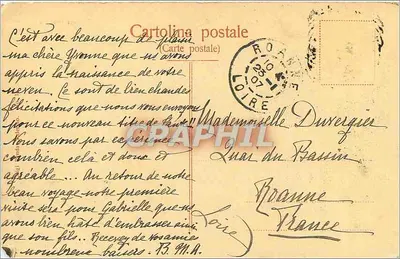 Cartolina postale
(Carte postale)
C'est avec beaucoup de plaisir
ma chère Yvonne que ns avons
appris la naissance de votre
neveu. Ce sont de bien chaudes
félicitations que nous vous envoyons
pour ce nouveau titre de
Nous savons par expérience
combien cela est doux et
agréable... Au retour de notre
beau voyage notre première
visite sera pour Gabrielle que ns
avons bien hâte d'embrasser ainsi
que son fils. Recevez de vos amies
nombreux baisers. B. M. A.
ROANNE
25 -1
07
LOIRE
Mademoiselle Duvergier
Quai du Bassin
Roanne
(Loire)
France
CPAPHIL